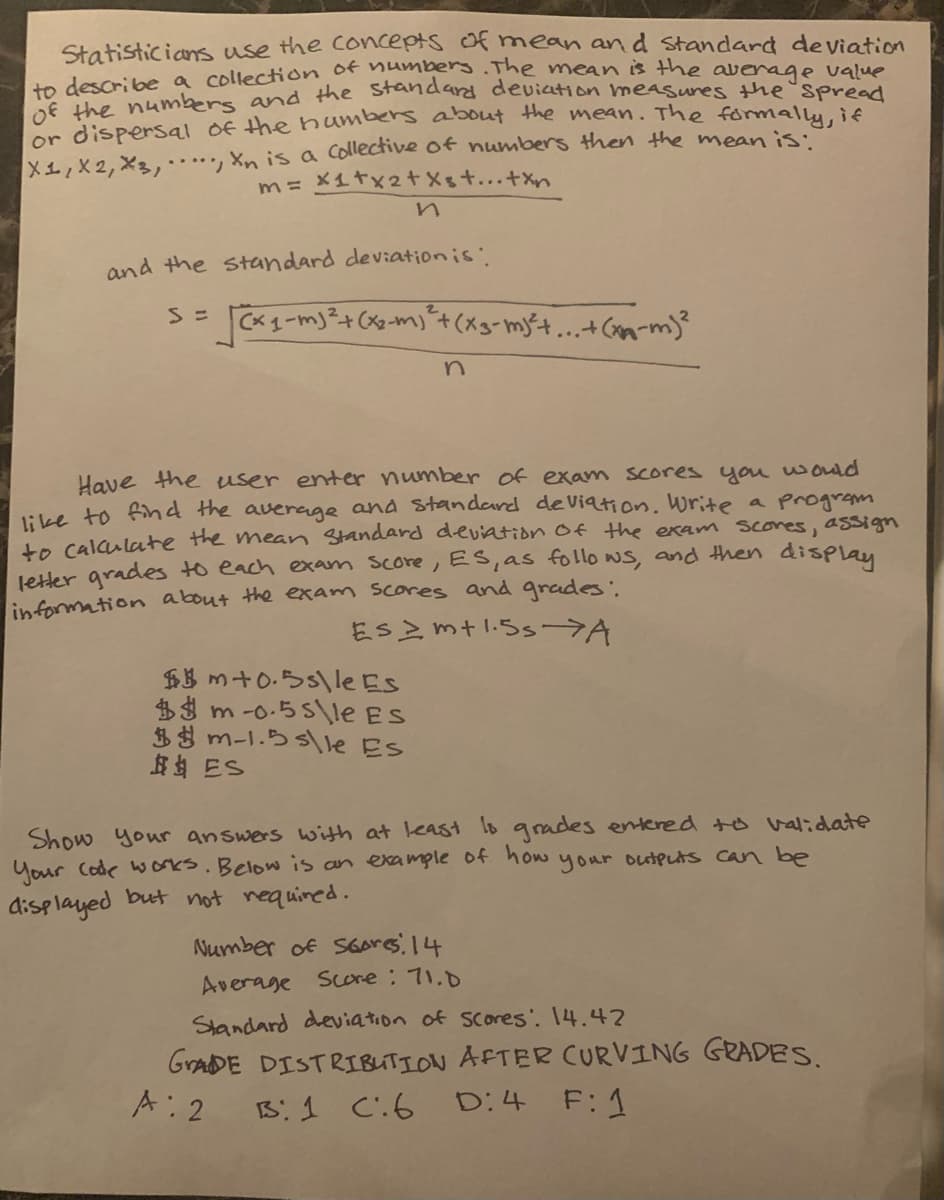 Statisticians use the concepts of mean and standard deviation
to describe a collection of numbers. The mean is the average value
of the numbers and the standard deviation measures the spread
or dispersal of the numbers about the mean. The formally, if
x1, x2, x3, ....., xn is a collective of numbers then the mean is:
m = x1+x2+x3+...+xn
n
and the standard deviation is:
S = √(x1-m)²+(x2-m)²+(x3-m)²+...+(xn-m)²
n
Have the user enter number of exam scores you would
like to find the average and standard deviation. Write a program
to calculate the mean standard deviation of the exam scores, assign
letter grades to each exam score, ES, as follows, and then display
information about the exam scores and grades:
ES ≥ m+1.5s → A
$$ m+0.5s\le ES
$$ m-0.5s\le ES
$$ m-1.5s\le ES
$$ ES
Show your answers with at least 10 grades entered to validate
your code works. Below is an example of how your outputs can be
displayed but not required.
Number of scores: 14
Average Score: 71.0
Standard deviation of scores: 14.42
GRADE DISTRIBUTION AFTER CURVING GRADES.
A: 2 B: 1 C: 6 D: 4 F: 1